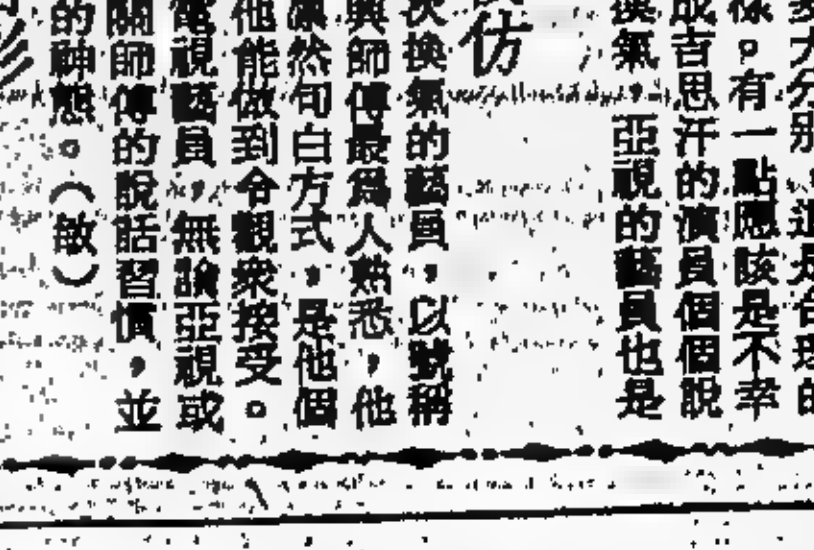 大分別
樣。有一點應該是不幸
成吉思汗的演員個個說
換氣 亞視的藝員也是
仿
次換氣的藝員，以號稱
興師傅最為人熟悉，他
然句白方式，是他個
他能做到令觀衆接受。
電視藝員，無論亞視或
關師傅的說話習慣，並
的神態。（敏）
影